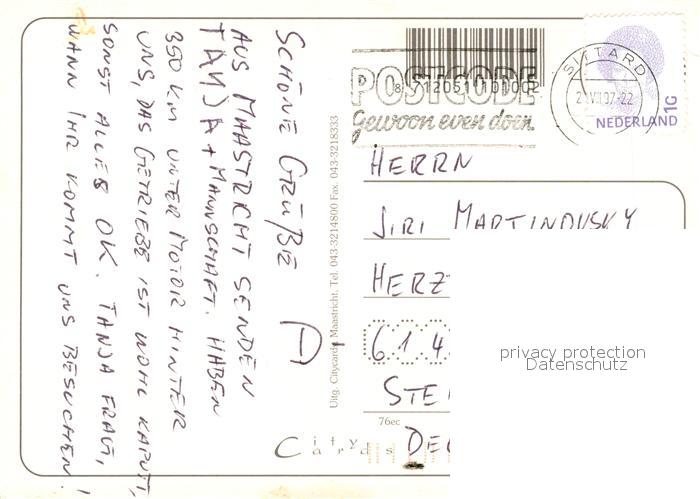 SCHÖNE GRÜßE
AUS MAASTRICHT SENDEN
TANJA + MANNSCHAFT. HABEN
350 KM UNTER MOTOR HINTER
UNS, DAS GETRIEBE IST WOHL KAPUTT,
SONST ALLES OK. TANJA FRAGT,
WANN IHR KOMMT UNS BESUCHEN!
Uitg. Citycards Maastricht. Tel. 043-3214800 Fax. 043-3218333
8 712051 101002
POSTCODE
Gewoon even doen
SITTARD
NEDERLAND
1G
HERRN
JIRI MARTINOVSKY
HERZ
6 1 4
STE
76ec
City
cards
privacy protection
Datenschutz